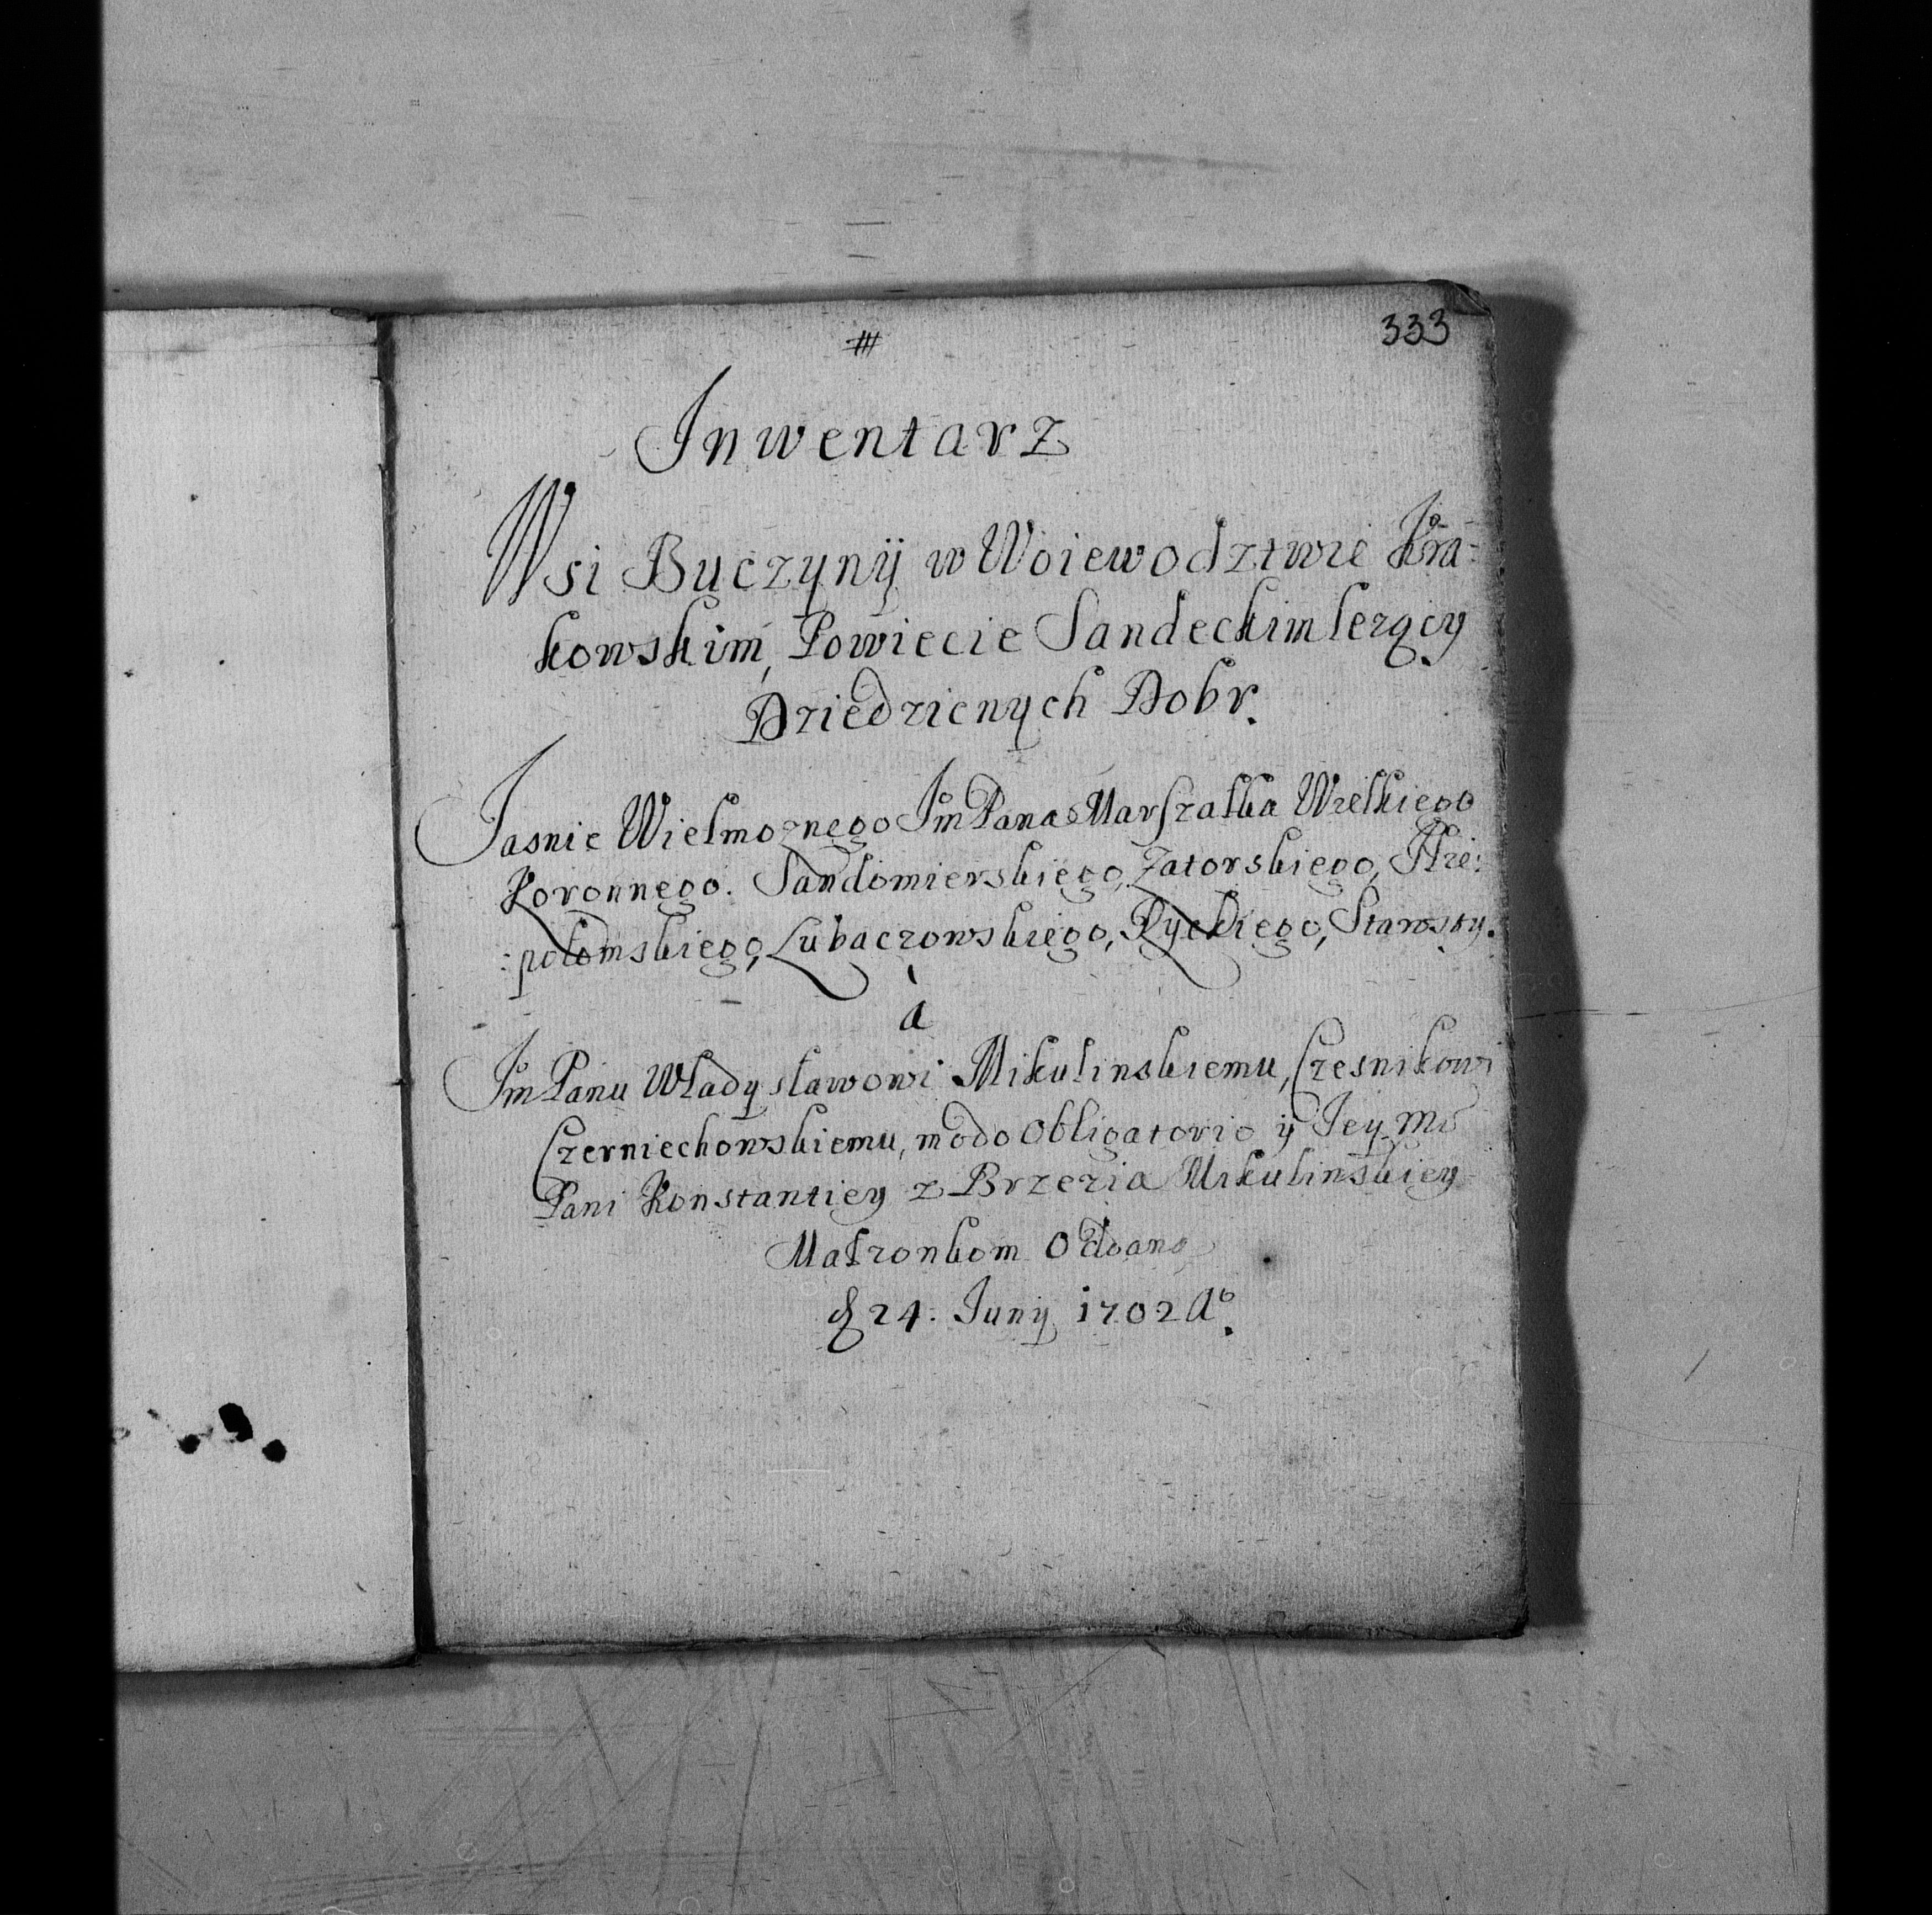 333
Inwentarz
Wsi Buczynÿ w Woiewodztwie Kra-
kowskim, Powiecie Sandeckim lezący
Dziedzicnych Dobr.
Jasnie Wielmoznego Jm Pana Marszałka Wielkiego
Koronnego. Sandomierskiego, Zatorskiego,
Lubaczowskiego, Ryckiego, Starosty.
à
Jm Panu Władysławowi Mikulinskiemu, Czesnikowi
Czerniechowskiemu, modo obligatorio ÿ Jey Mci
Pani Konstantiey z Brzezia Mikulinskiey
Małzonkom Oddano
24. Junÿ 1702 Aº.